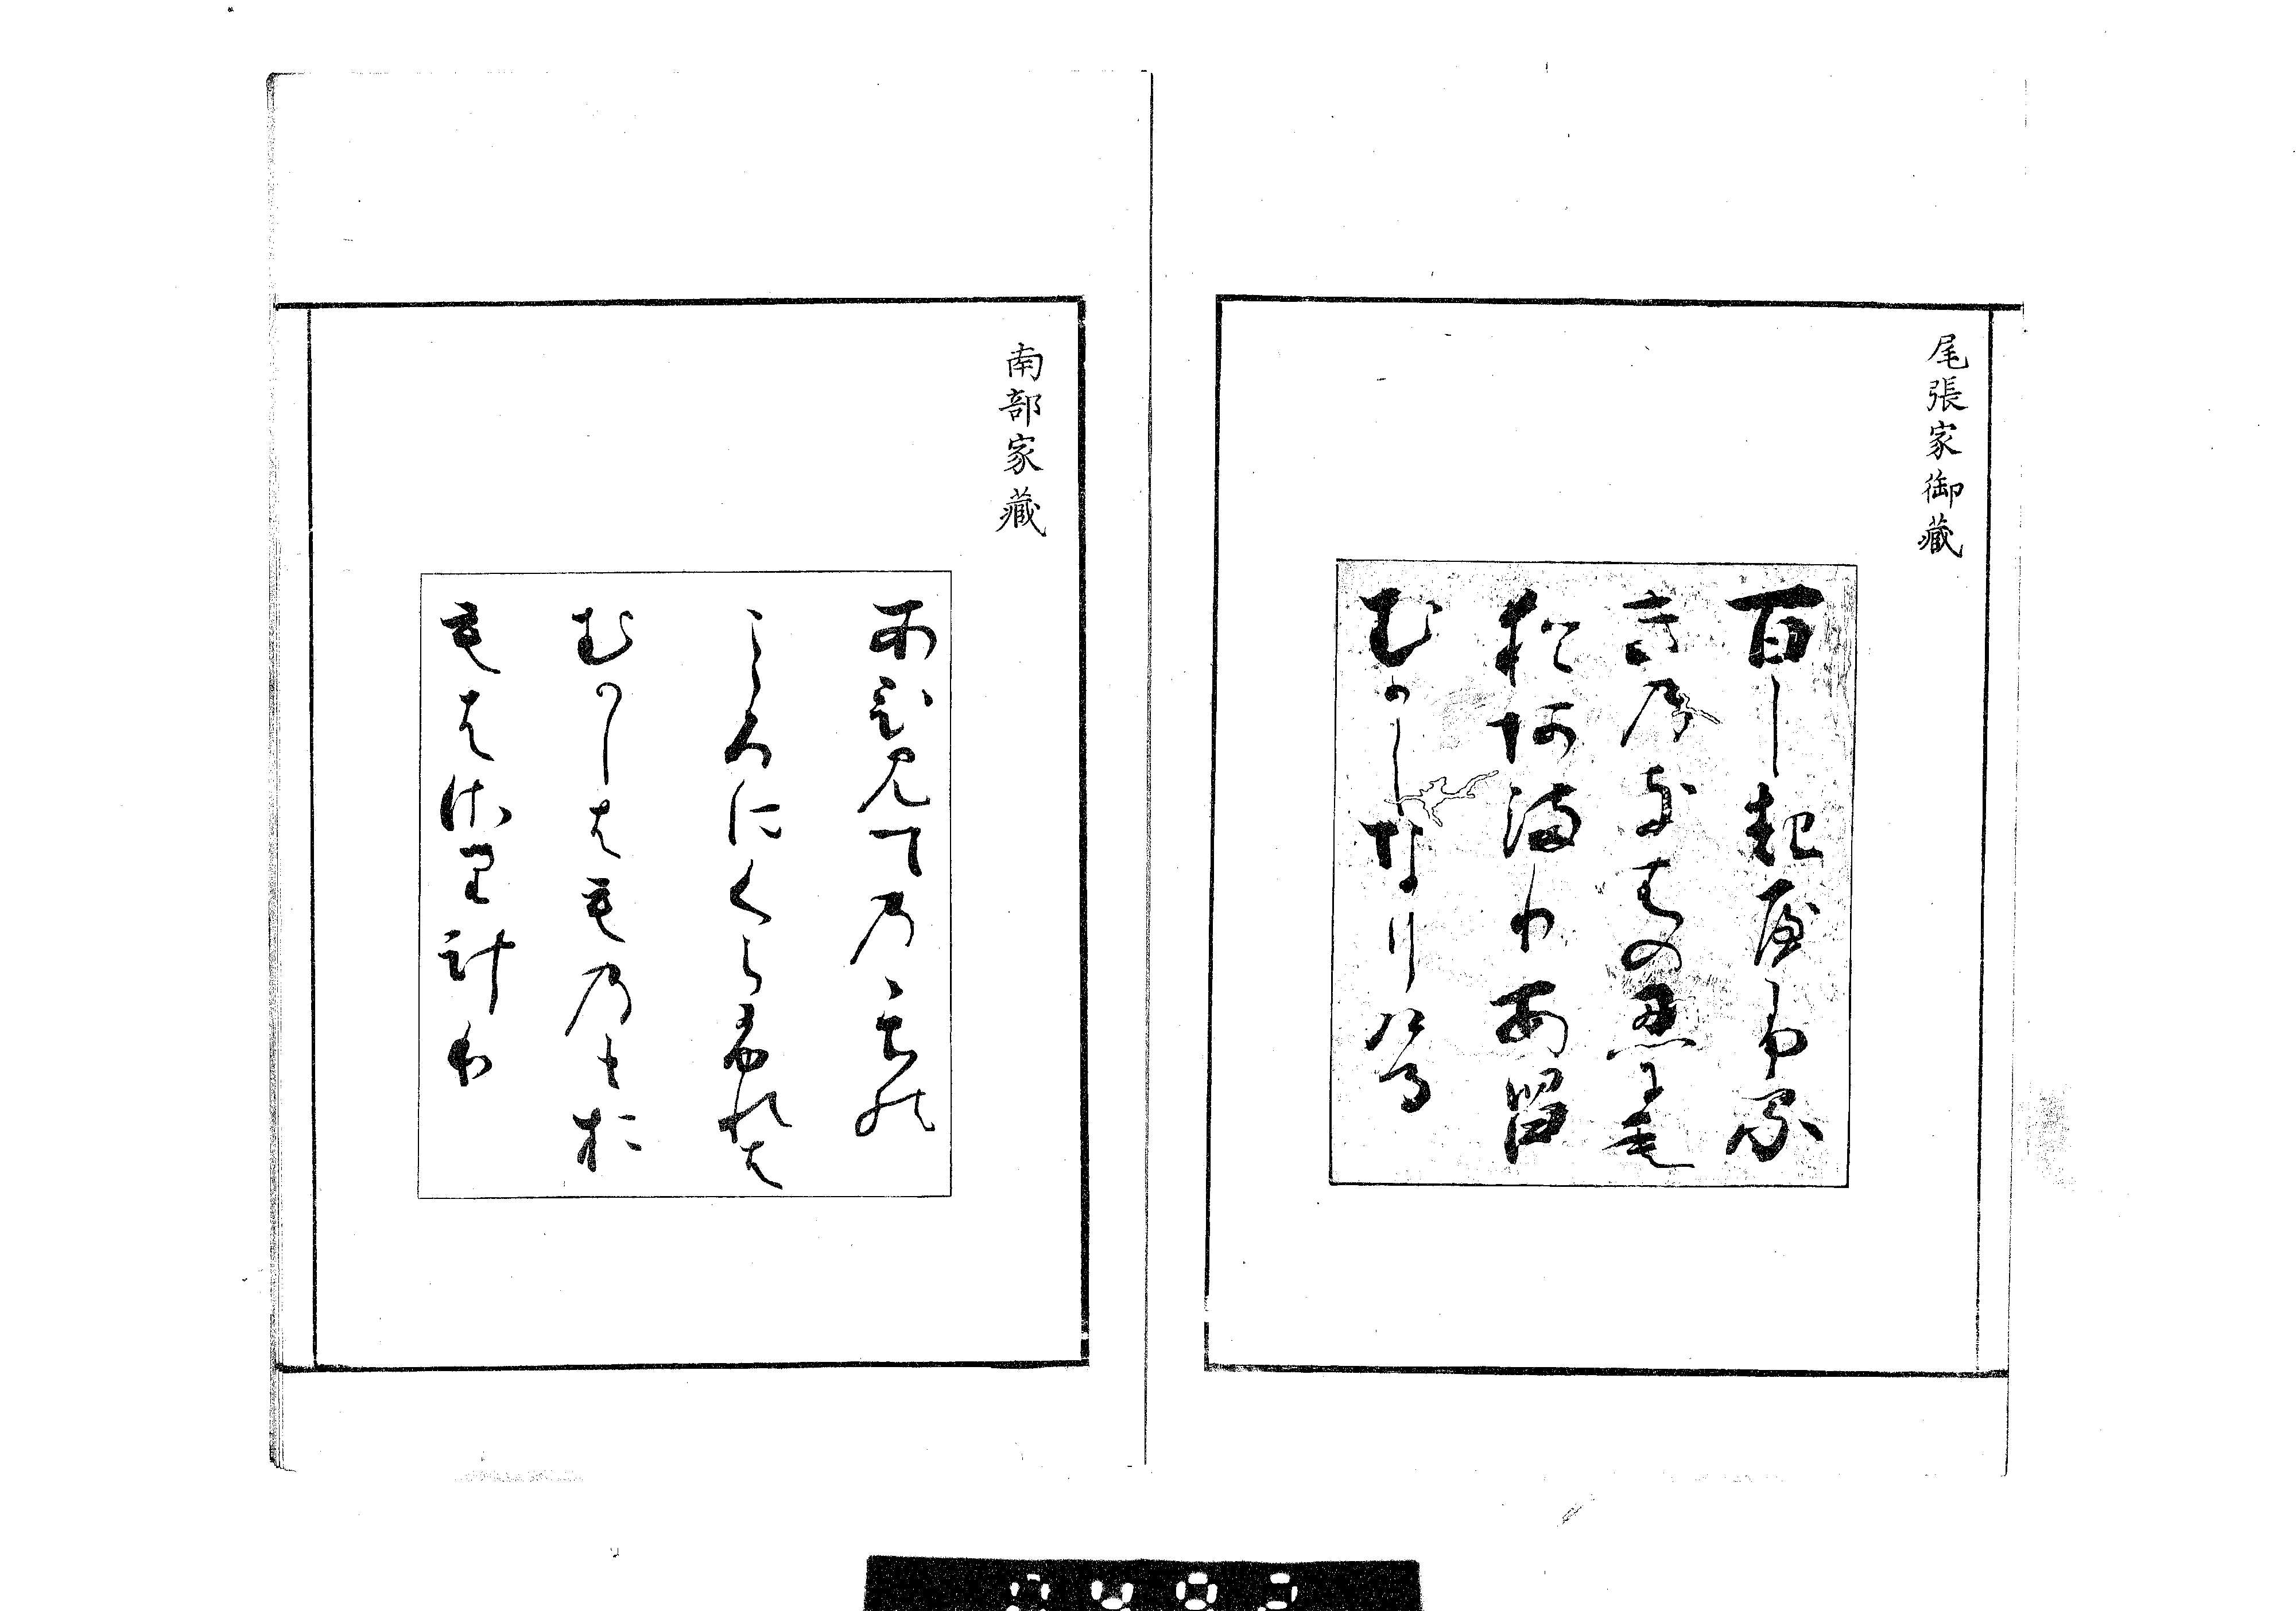 尾張家御蔵
百しきやふる
き のきはの忍にも
猶あまりある
むかしなりけり
南部家蔵
あひ見てのゝちの
こゝろにくらふれは
むかしはものをお
もはさりけり